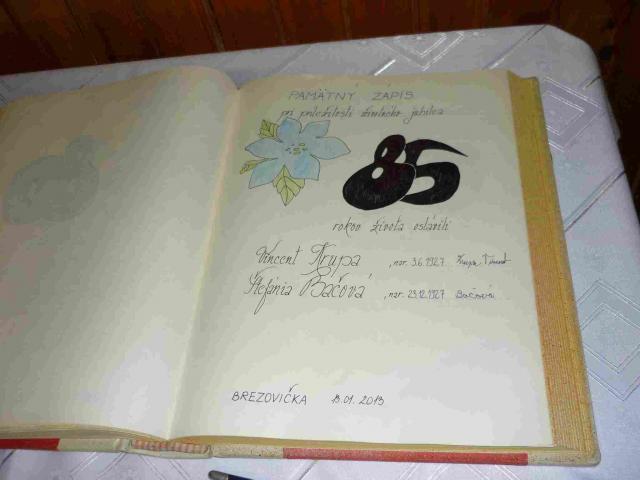 PAMÄTNÝ ZÁPIS
pri príležitosti životného jubilea
85
rokov života oslávili
Vincent Krupa , nar. 3.6.1927 Krupa Vincent
Štefánia Bačová , nar. 23.12.1927 Bačová
BREZOVIČKA 13.01.2013